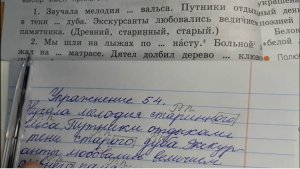 1. Звучала мелодия ... вальса. Путники отды
в тени ... дуба. Экскурсанты любовались величием
памятника. (Древний, старинный, старый.)
2. Мы шли на лыжах по ... насту. Больной
жал на ... матрасе. Дятел долбил дерево ... клюво
украшени
ный день
поэзией
Белок
белой
Упражнение 54.
Звучала мелодия старинного
вальса. Путники отдыхали
тени старого дуба. Экскур
санты любовались величием